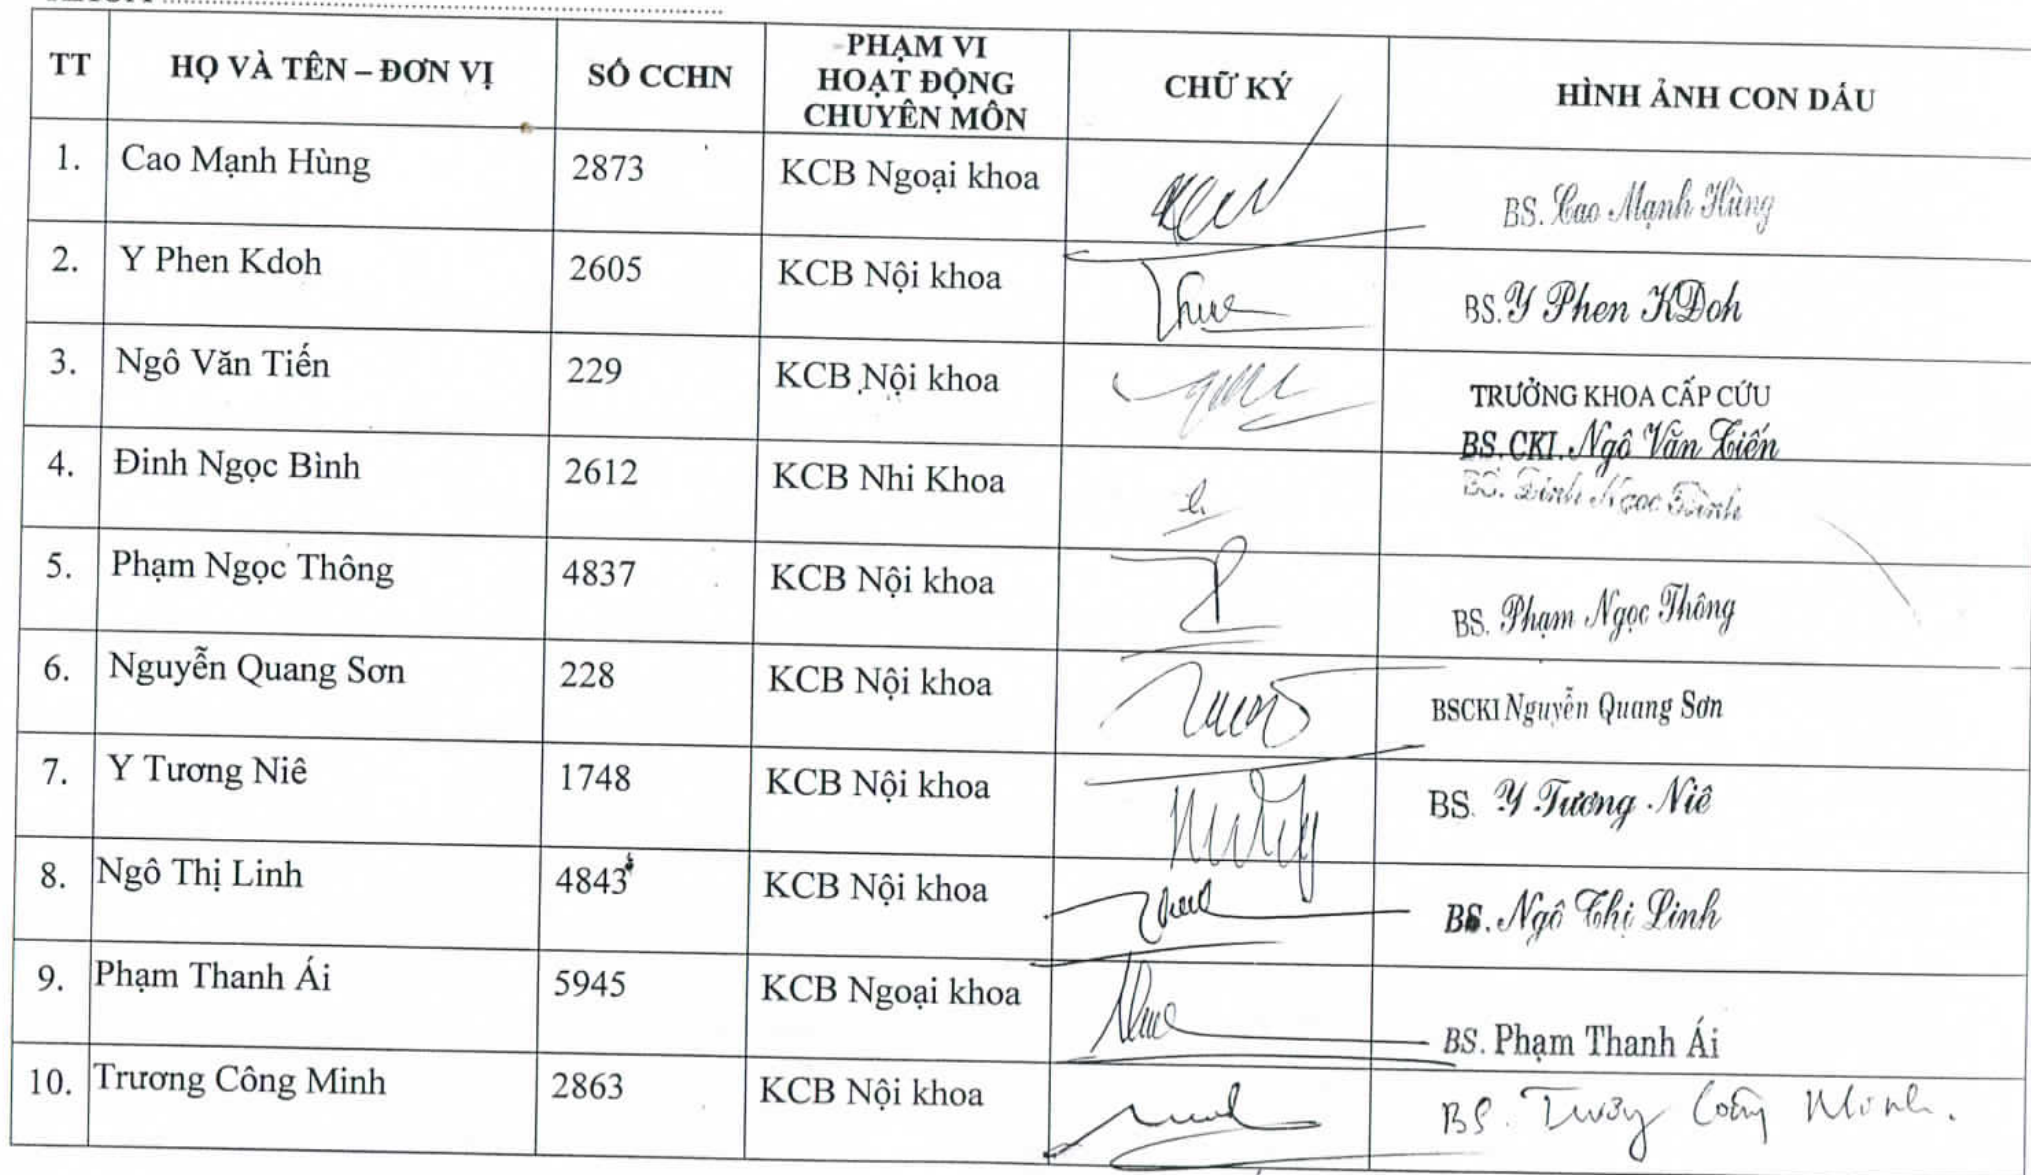 TT HỌ VÀ TÊN – ĐƠN VỊ SỐ CCHN PHẠM VI HOẠT ĐỘNG CHUYÊN MÔN CHỮ KÝ HÌNH ẢNH CON DẤU
1. Cao Mạnh Hùng 2873 KCB Ngoại khoa BS. Cao Mạnh Hùng
2. Y Phen Kdoh 2605 KCB Nội khoa BS. Y Phen KDoh
3. Ngô Văn Tiến 229 KCB Nội khoa TRƯỞNG KHOA CẤP CỨU
BS.CKI. Ngô Văn Tiến
4. Đinh Ngọc Bình 2612 KCB Nhi Khoa BS. Đinh Ngọc Bình
5. Phạm Ngọc Thông 4837 KCB Nội khoa BS. Phạm Ngọc Thông
6. Nguyễn Quang Sơn 228 KCB Nội khoa BSCKI Nguyễn Quang Sơn
7. Y Tương Niê 1748 KCB Nội khoa BS. Y Tương Niê
8. Ngô Thị Linh 4843 KCB Nội khoa BS. Ngô Thị Linh
9. Phạm Thanh Ái 5945 KCB Ngoại khoa BS. Phạm Thanh Ái
10. Trương Công Minh 2863 KCB Nội khoa BS. Trương Công Minh.